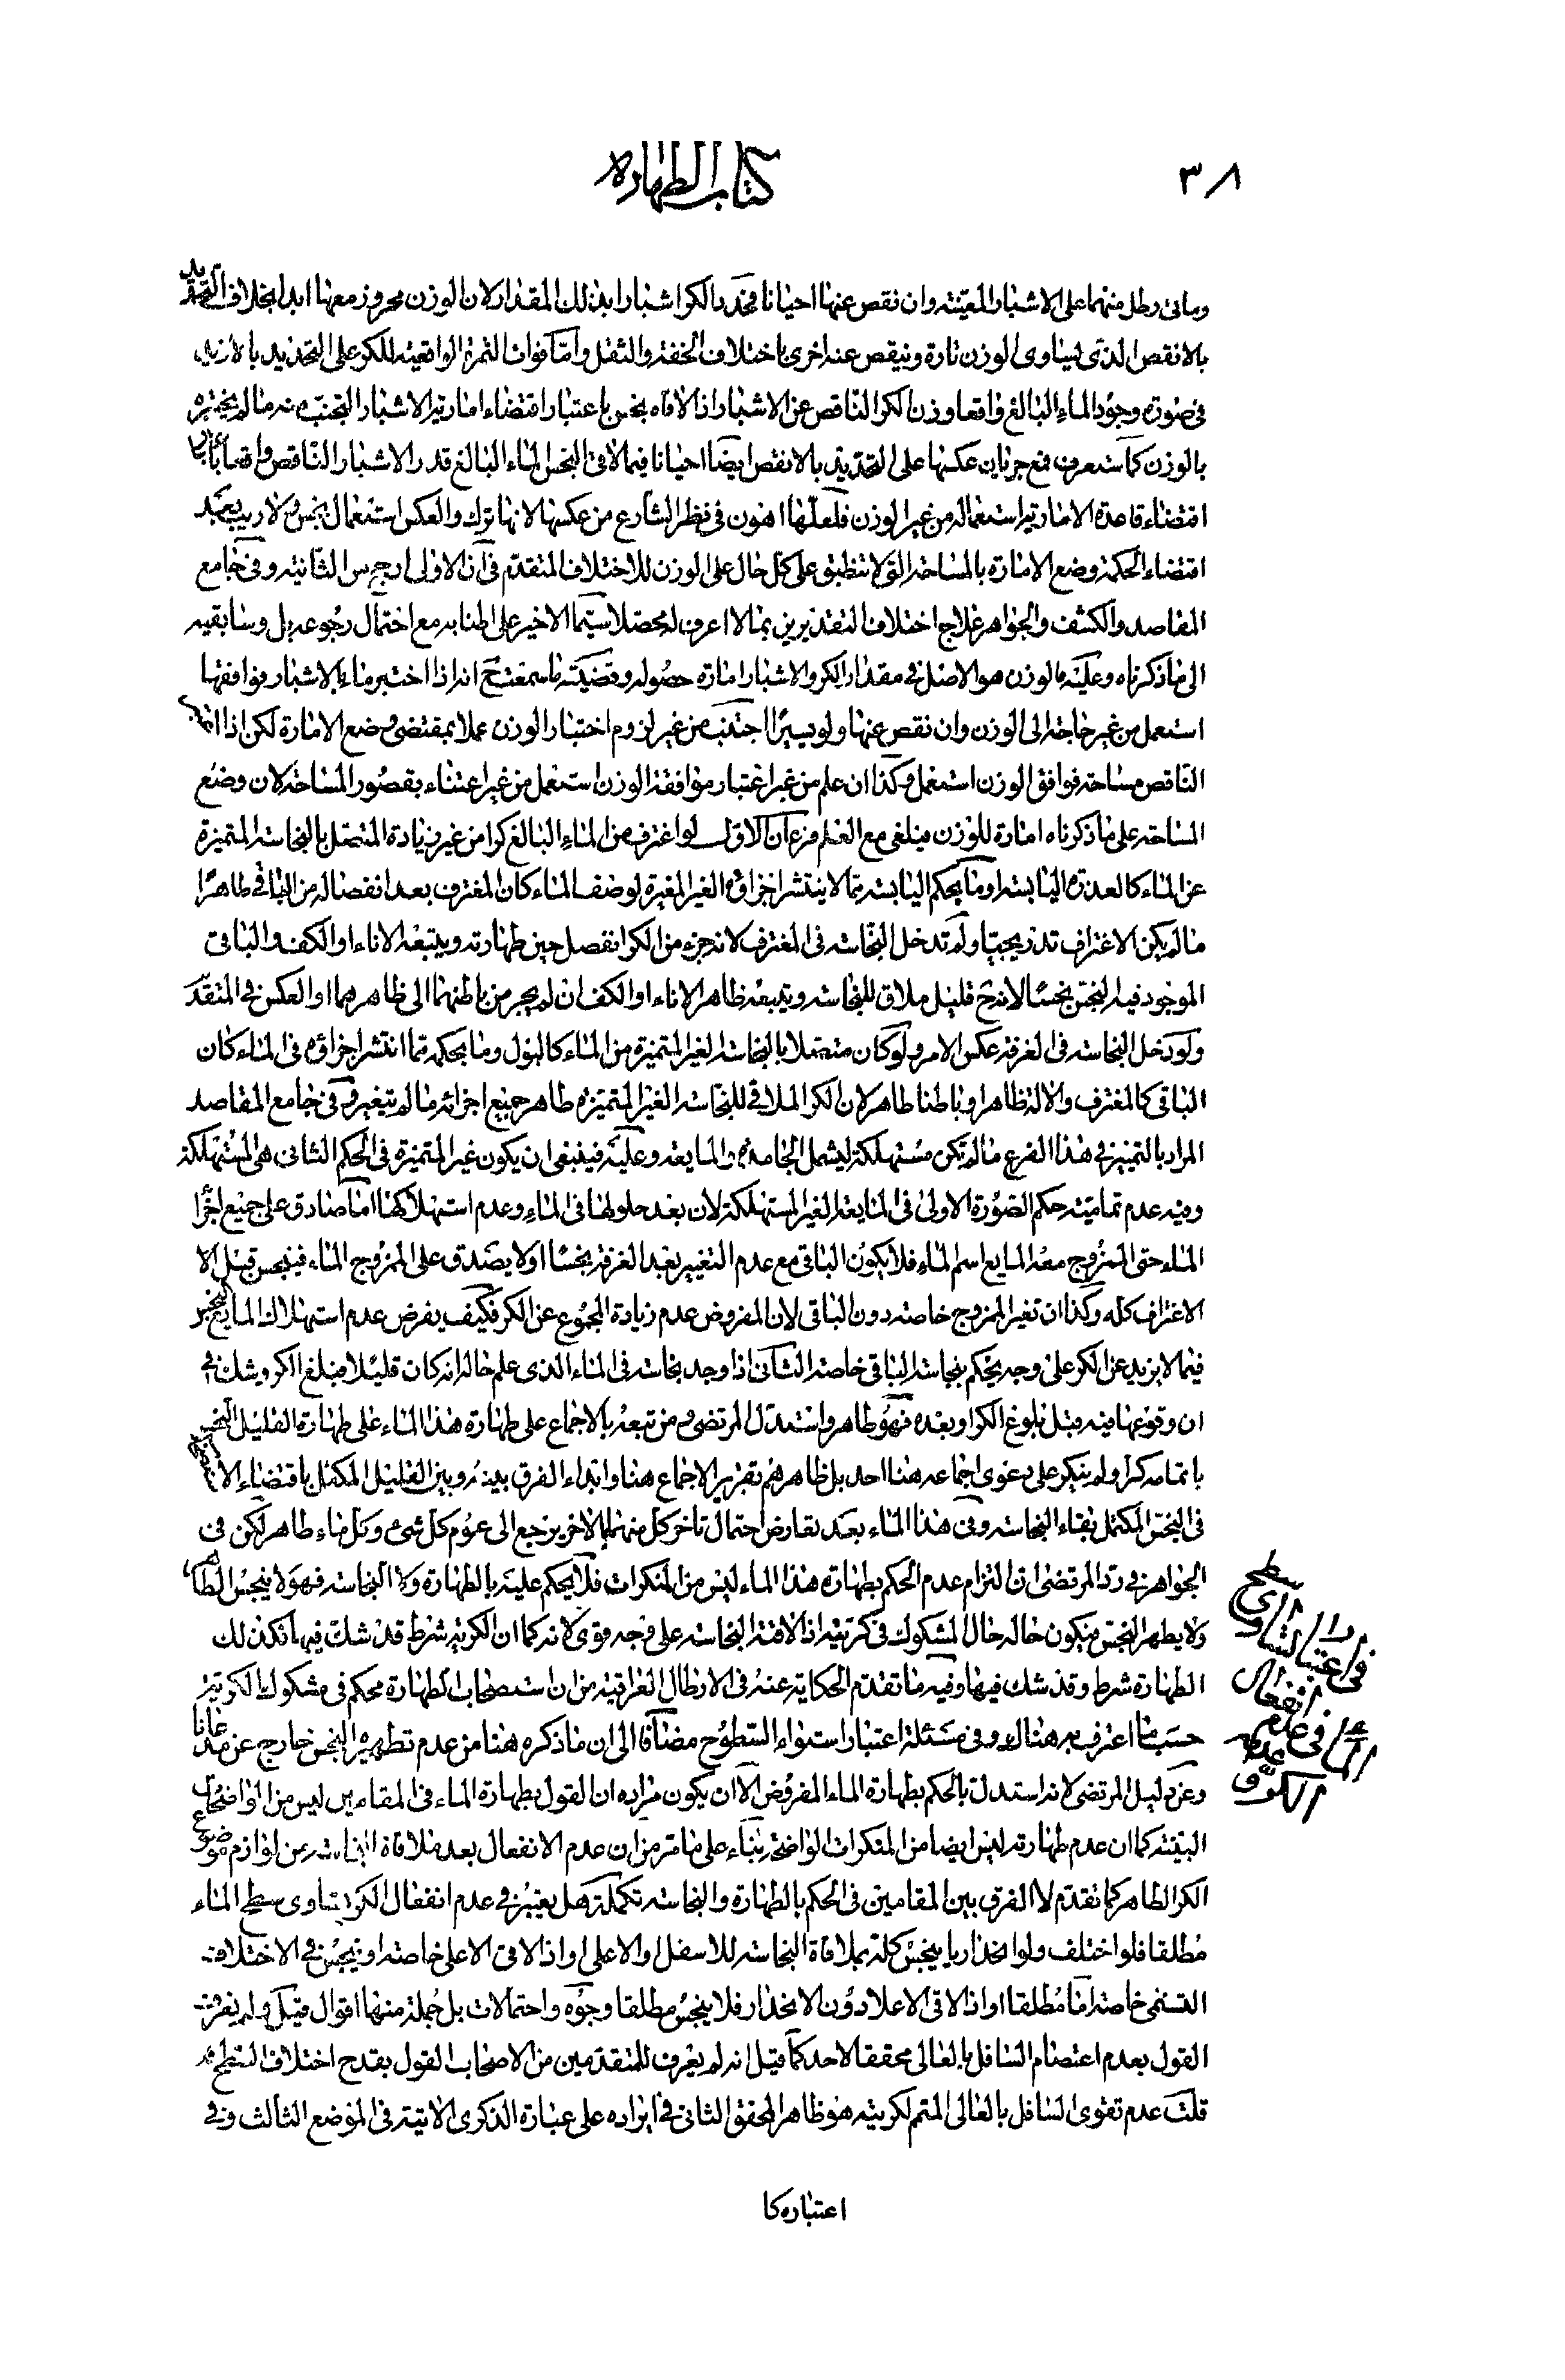 ٣٨
كتاب الطهارة
ومائى رطل منهما على الاشبار المعينة وان نقص عنها احيانا فتحدد الكر اشبارا بذلك المقدار لان الوزن محروز معها ابدا بخلاف التحديد
بالانقص الذى يساوى الوزن تارة وينقص عنه اخرى باختلاف الخفة والثقل وامّا فوات الثمرة الواقعية للكر على التحديد بالازيد
فى صورة وجود الماء البالغ واقعا وزن الكر الناقص عن الاشبار اذا لاقاه نجس باعتبار اقتضاء امارية الاشبار التجنب منه ما لم يختبره
بالوزن كما ستعرف فمع جريان عكسها على التحديد بالانقص ايضا احيانا فيما لاقى النجس الماء البالغ قدر الاشبار الناقص واقعا
اقتضاء قاعدة الامارية استعماله من غير الوزن فلعلّها اهون فى نظر الشارع من عكسها لانها ترك والعكس استعمال نجس ولا ريب بعد
اقتضاء الحكمة وضع الامارة بالمساحة التى لا تنطبق على كل حال على الوزن للاختلاف المتقدم فى ان الاولى ارجح من الثانية وفى جامع
المقاصد والكشف والجواهر علاج اختلاف التقديرين بما لا اعرف له محصلا سيّما الاخير على اطنابه مع احتمال رجوعه بل وسابقيه
الى ما ذكرناه وعليه فالوزن هو الاصل فى مقدار الكر والاشبار امارة حصوله وقضيّته ما سمعت من انه اذا اختبر ماء بالاشبار فوافقها
استعمل من غير حاجة الى الوزن وان نقص عنها ولو يسيرًا اجتنب من غير لزوم اختبار الوزن عملا بمقتضى وضع الامارة لكن اذا اختبر
الناقص مساحة فوافق الوزن استعمل وكذا ان علم من غير اختبار موافقة الوزن استعمل من غير اعتناء بقصور المساحة لان وضع
المساحة على ما ذكرناه امارة للوزن فيلغى مع العلم فرعان الاول لو اغترف من الماء البالغ كرا من غير زيادة المتصل بالنجاسة المتميزة
عن الماء كالعذرة اليابسة او ما بحكم اليابسة ممّا لا ينتشر اجزاؤه الغير المغيرة لوصف الماء كان المغترف بعد انفصاله من الباقى طاهرًا
ما لم يكن الاغتراف تدريجيّا ولم تدخل النجاسة فى المغترف لانه جزء من الكر انفصل حين طهارته ويتبعه الاناء او الكف والباقى
الموجود فيه النجس نجسًا لانه ح قليل ملاق للنجاسة ويتبعه ظاهر الاناء او الكف ان لم يجر من باطنهما الى ظاهرهما او العكس فى المتقدّم
ولو دخل النجاسة فى الغرفة عكس الامر ولو كان متصلا بالنجاسة الغير المتميزة من الماء كالبول وما بحكمه ممّا انتشر اجزاؤه فى الماء كان
الباقى كالمغترف والآلة ظاهرا وباطنا طاهر لان الكر الملاقى للنجاسة الغير المتميزة طاهر جميع اجزائه ما لم يتغير وفى جامع المقاصد
المراد بالتميز فى هذا الفرع ما لم تكن مستهلكة ليشمل الجامدة والمايعة وعليه فينبغى ان يكون غير المتميزة فى الحكم الثانى هى المستهلكة
وفيه عدم تماميّة حكم الصورة الاولى فى المايعة الغير المستهلكة لان بعد حلولها فى الماء وعدم استهلاكها امّا صادق على جميع اجزاء
الماء حتى الممزوج معه المايع اسم الماء فلا يكون الباقى مع عدم التغيير بعد الغرفة نجسًا او لا يصدق على الممزوج الماء فينجس قبل
الاغتراف كله وكذا ان تغير الممزوج خاصة دون الباقى لان المفروض عدم زيادة المجموع عن الكر فكيف يفرض عدم استهلاك المايع النجس
فيما لا يزيد عن الكر على وجه يحكم بنجاسة الباقى خاصة الثانى اذا وجد نجاسة فى الماء الذى علم حاله انه كان قليلا فبلغ الكر وشك فى
ان وقوعها فيه قبل بلوغ الكر او بعده فهو طاهر واستدل المرتضى ومن تبعه بالاجماع على طهارة هذا الماء على طهارة القليل النجس
باتمامه كرا ولم ينكر على دعوى اجماعه هنا احد بل ظاهرهم تقرير الاجماع هنا وابداء الفرق بينه وبين القليل المكمل باقتضاء
فى النجس المكمل بقاء النجاسة وفى هذا الماء بعد تعارض احتمال تاخر كل منهما بالاخر يرجع الى عموم كل شىء وكل ماء طاهر لكن فى
الجواهر فى ردّ المرتضى ان التزام عدم الحكم بطهارة هذا الماء ليس من المنكرات فلا يحكم عليه بالطهارة ولا النجاسة فهو لا ينجس الطاهر
ولا يطهر النجس فيكون حاله حال المشكوك فى كريته اذا لاقته النجاسة على وجه قوى لانه كما ان الكرية شرط قد شك فيها فكذلك
الطهارة شرط وقد شك فيها وفيه ما تقدم الحكاية عنه فى الارطال العراقية من ان استصحاب الطهارة محكم فى مشكوك الكرية
حسب ما اعترف به هنالك وفى مسئلة اعتبار استواء السطوح مضافا الى ان ما ذكره هنا من عدم تطهيره النجس خارج عن مدعانا
وعن دليل المرتضى لانه استدل بالحكم بطهارة الماء المفروض الا ان يكون مراده ان القول بطهارة الماء فى المقامين ليس من الواضحات
البينة كما ان عدم طهارته ليس ايضا من المنكرات الواضحة بناء على ما مر من ان عدم الانفعال بعد ملاقاة النجاسة من لوازم موضوع
الكر الطاهر كما تقدم لا الفرق بين المقامين فى الحكم بالطهارة والنجاسة تكملة هل يعتبر فى عدم انفعال الكر تساوى سطح الماء
مطلقا فلو اختلف ولو انحدارا ينجس كله بملاقاة النجاسة للاسفل او الاعلى او اذا لاقى الاعلى خاصة او ينجس فى الاختلاف
التسنمى خاصة امّا مطلقا او اذا لاقى الاعلا دون الانحدار فلا ينجس مطلقا وجوه واحتمالات بل جملة منها اقوال قيل ولم نعرف
القول بعدم اعتصام السافل بالعالى محققا لاحد كما قيل انه لم يعرف للمتقدمين من الاصحاب القول بقدح اختلاف السطح
قلت عدم تقوى السافل بالعالى المتمم لكريته هو ظاهر المحقق الثانى فى ايراده على عبارة الذكرى الاتية فى الموضع الثالث وفى
فى اعتبار تساوى سطح
الماء فى عدم انفعال
الكر و عدمه
اعتباره كا